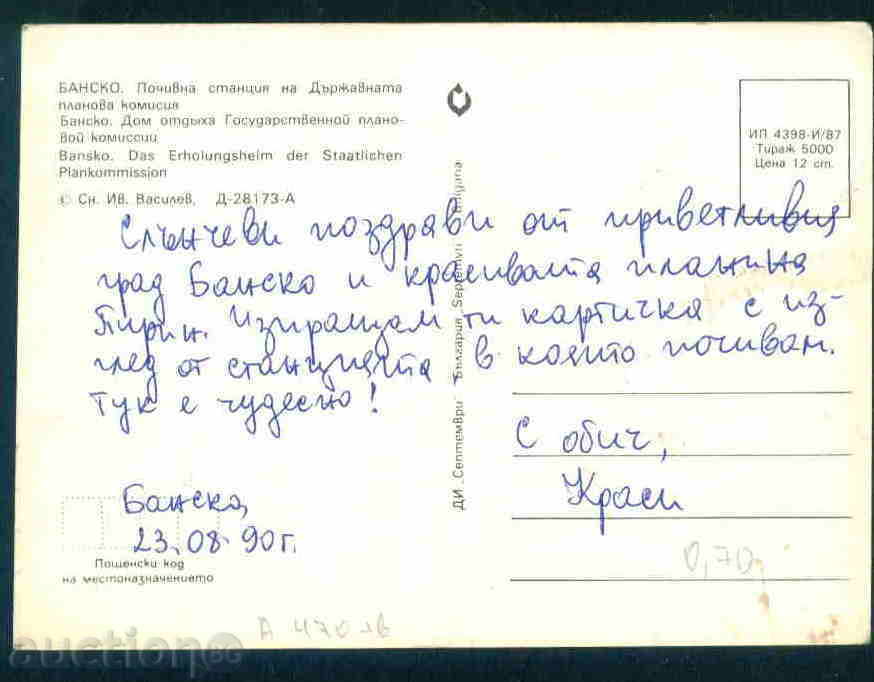 БАНСКО. Почивна станция на Държавната
планова комисия
Банско. Дом отдыха Государственной плано-
вой комиссии
Bansko. Das Erholungsheim der Staatlichen
Plankommission
© Сн. Ив. Василев, Д-28173-А
ИП 4398-И/87
Тираж 5000
Цена 12 ст.
Слънчеви поздрави от приветливия
град Банско и красивата планина
Пирин. Изпращам ти картичка с из-
глед от станцията в която почивам.
Тук е чудесно!
С обич,
Краси
Банско,
23.08.90г.
Пощенски код
на местоназначението
ДИ „Септември" България Septemvri Bulgaria
0,70
А 470лв
auction BG